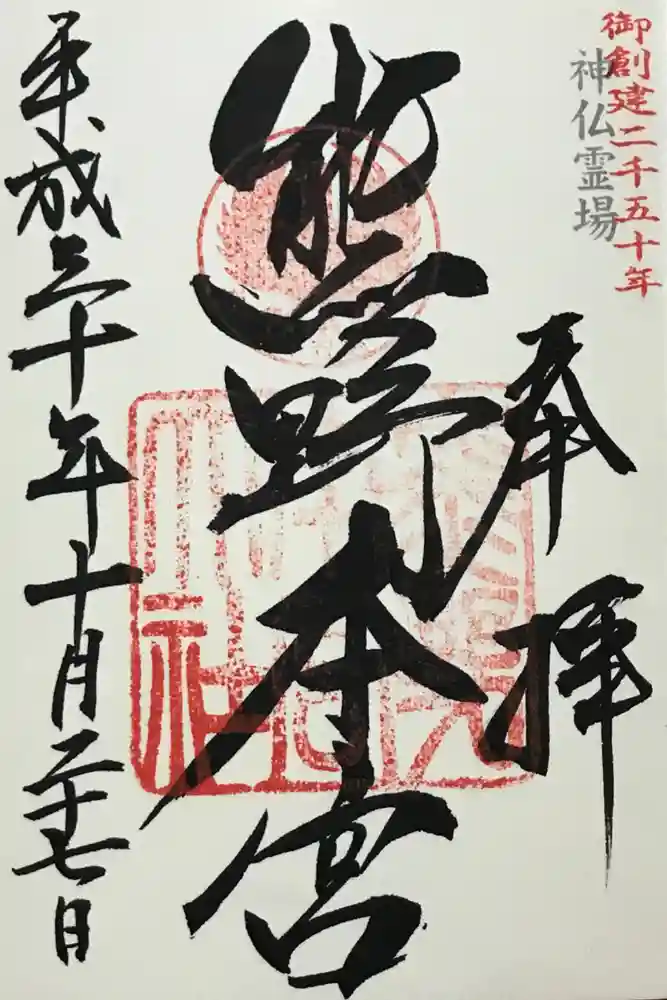 御創建二千五十年
神仏霊場
奉拝
熊野本宮
平成三十年十月二十七日